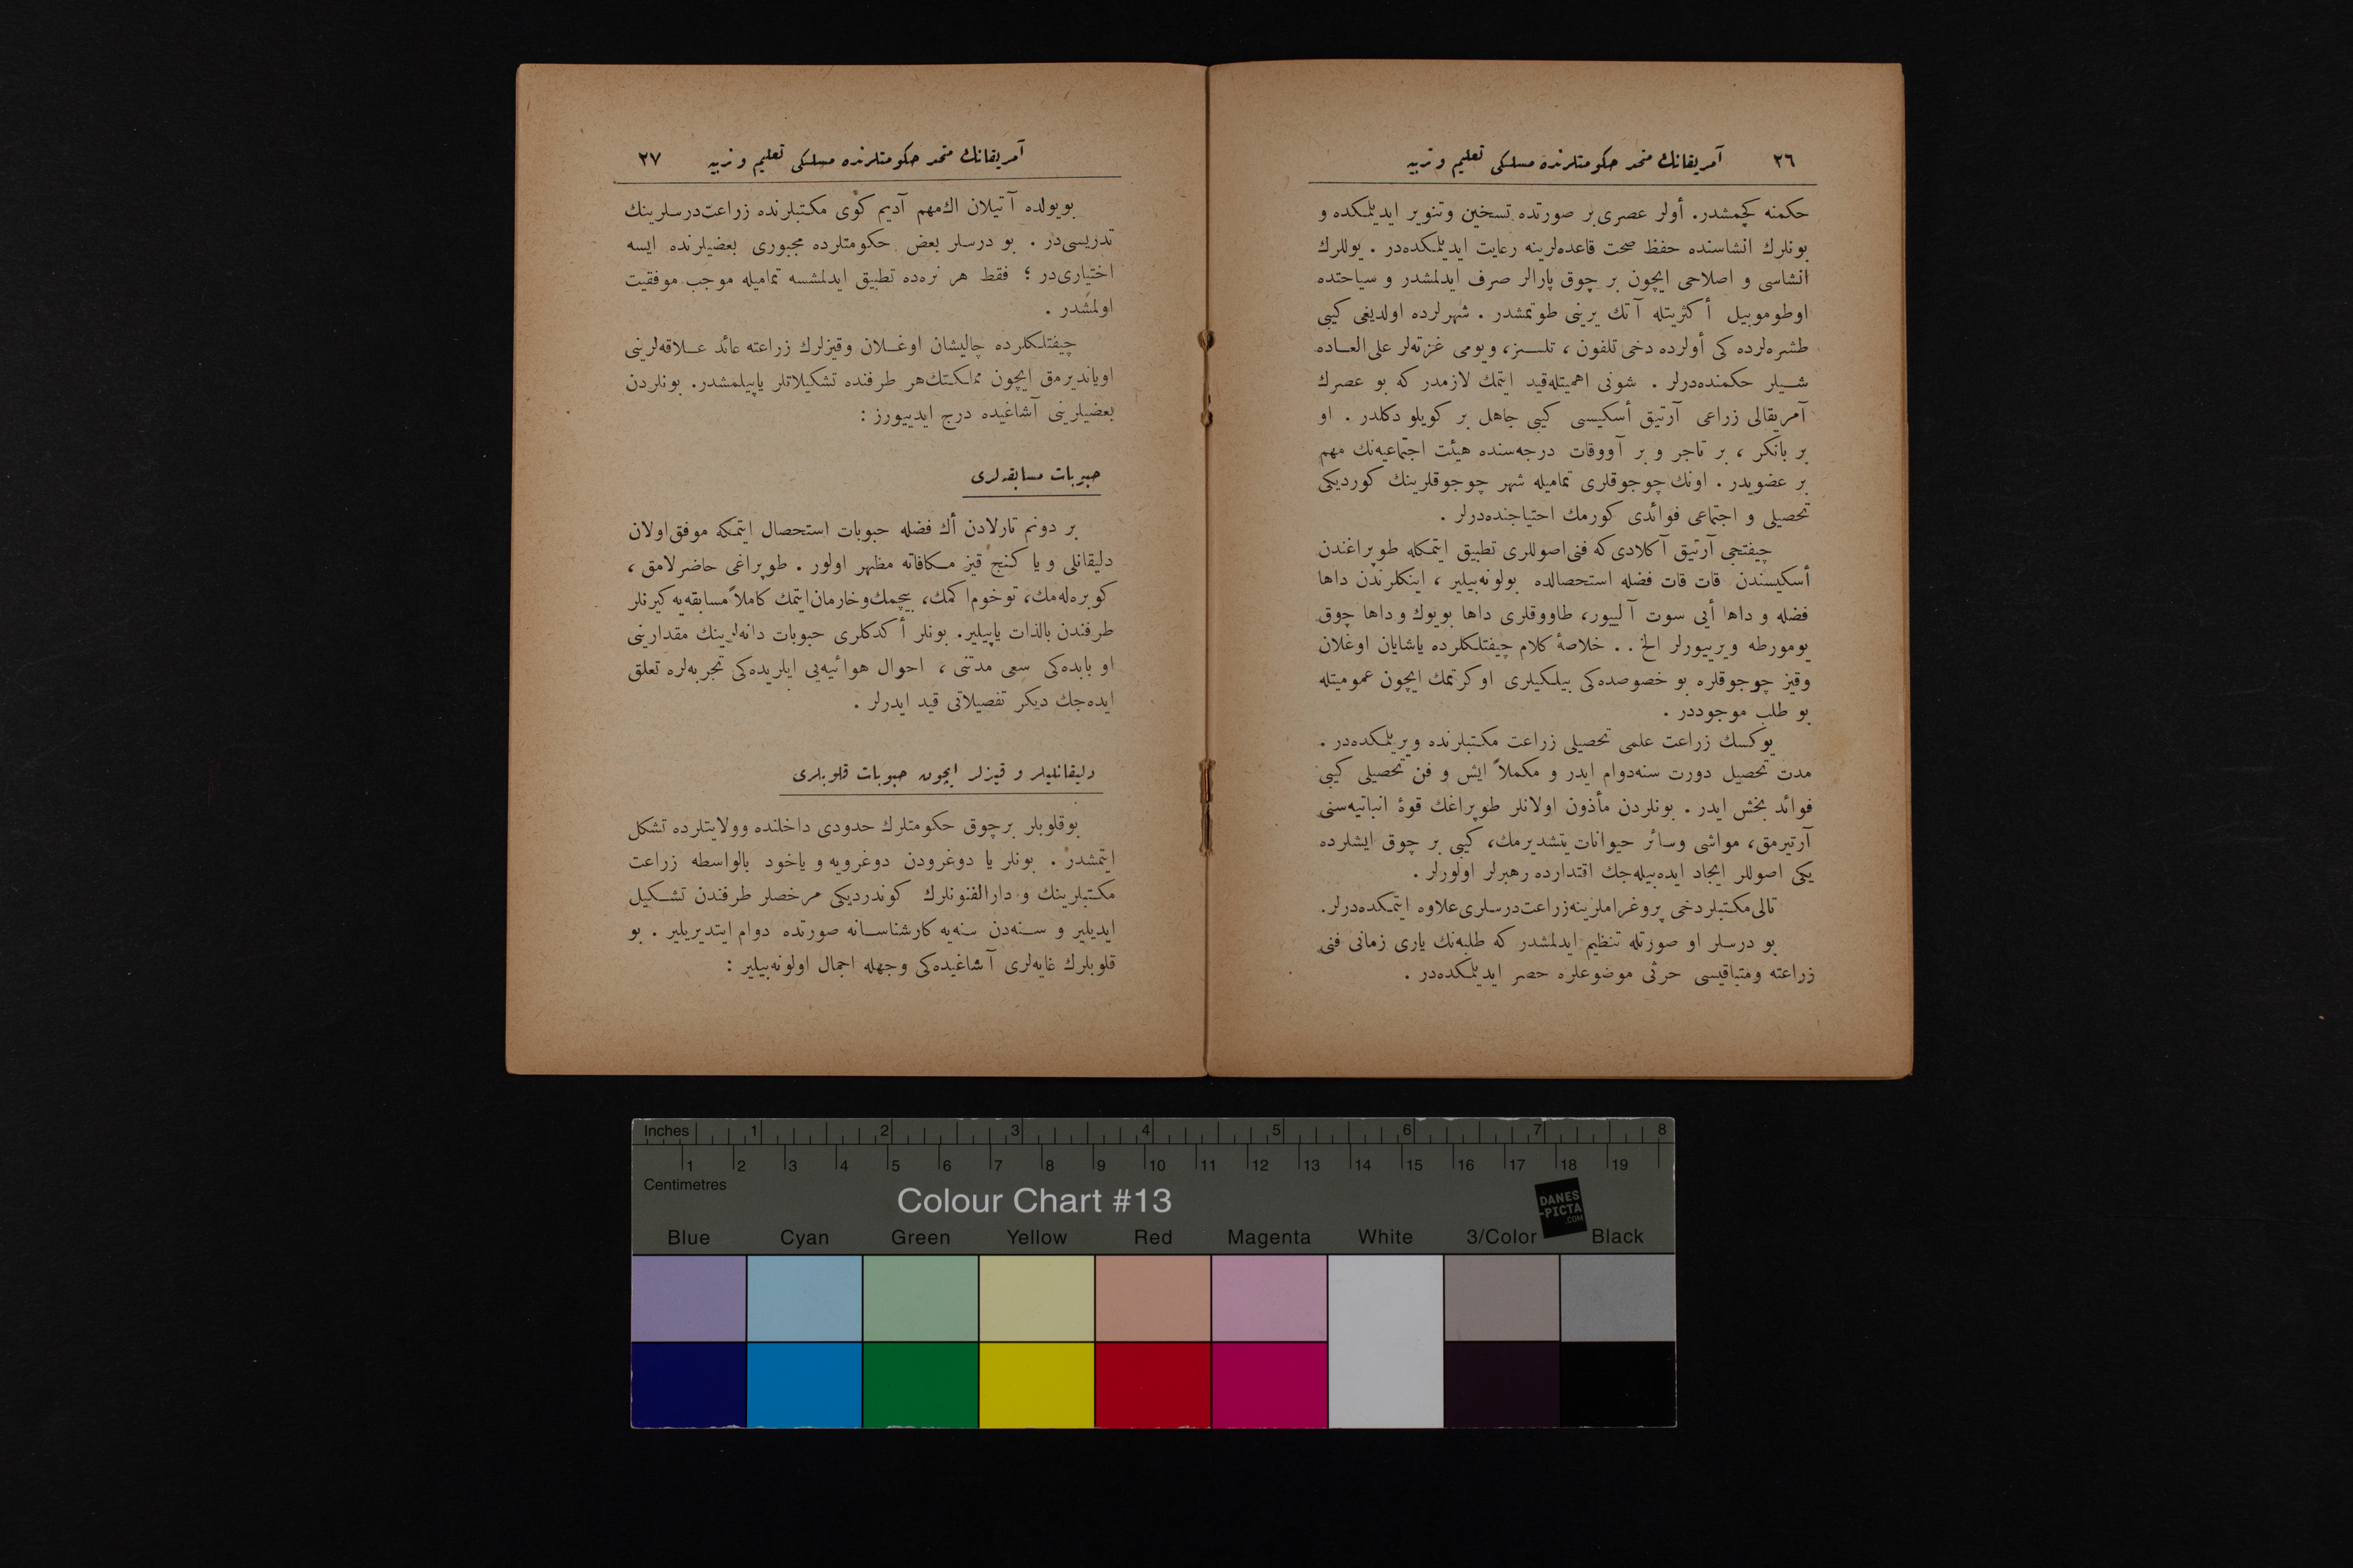 ٢٦ آمريقانك متحد حكومتلرنده مسلكی تعليم و تربيه
حكمنه كچمشدر. أولر عصری بر صورتده تسخين وتنوير ايديلمكده و
بونلرك انشاسنده حفظ صحت قاعده‌لرينه رعايت ايديلمكده‌در . يوللرك
انشاسی و اصلاحی ايچون بر چوق پارالر صرف ايدلمشدر و سياحتده
اوطوموبيل أكثريتله آتك يرينی طوتمشدر . شهرلرده اولديغی كيبی
طشره‌لرده كی أولرده دخی تلفون ، تلسز، ويومی غزته‌لر علی العاده
شيلر حكمنده‌درلر . شونی اهميتله قيد ايتمك لازمدر كه بو عصرك
آمريقالی زراعی آرتيق أسكيسی كيبی جاهل بر كويلو دكلدر . او
بر بانكر ، بر تاجر و بر آووقات درجه‌سنده هيئت اجتماعيه‌نك مهم
بر عضويدر . اونك چوجوقلری تماميله شهر چوجوقلرينك كورديكی
تحصيلی و اجتماعی فوائدی كورمك احتياجنده‌درلر .
چيفتجی آرتيق آكلادی كه فنی اصوللری تطبيق ايتمكله طوپراغندن
أسكيسندن قات قات فضله استحصالده بولونه‌بيلير ، اينكلرندن داها
فضله و داها أيی سوت آلييور، طاووقلری داها بويوك و داها چوق
يومورطه ويرييورلر الخ . . خلاصهٔ كلام چيفتلكلرده ياشايان اوغلان
وقيز چوجوقلره بو خصوصده‌كی بيلكيلری اوكرتمك ايچون عموميتله
بو طلب موجوددر .
يوكسك زراعت علمی تحصيلی زراعت مكتبلرنده ويريلمكده‌در .
مدت تحصيل دورت سنه دوام ايدر و مكملاً ايش و فن تحصيلی كيبی
فوائد بخش ايدر . بونلردن مأذون اولانلر طوپراغك قوهٔ انباتيه‌سنی
آرتيرمق، مواشی وسائر حيوانات يتشديرمك، كيبی بر چوق ايشلرده
يكی اصوللر ايجاد ايده‌بيله‌جك اقتدارده رهبرلر اولورلر .
تالی مكتبلر دخی پروغراملرينه زراعت درسلری علاوه ايتمكده‌درلر.
بو درسلر او صورتله تنظيم ايدلمشدر كه طلبه‌نك ياری زمانی فنی
زراعته ومتباقيسی حرثی موضوعلره حصر ايديلمكده‌در .
آمريقانك متحد حكومتلرنده مسلكی تعليم و تربيه ٢٧
بويولده آتيلان اك مهم آديم كوی مكتبلرنده زراعت درسلرينك
تدريسی‌در . بو درسلر بعض حكومتلرده مجبوری بعضيلرنده ايسه
اختياری‌در ؛ فقط هر نره‌ده تطبيق ايدلمشسه تماميله موجب موفقيت
اولمشدر .
چيفتلكلرده چاليشان اوغلان وقيزلرك زراعته عائد علاقه‌لرينی
اوياندیرمق ايچون مملكتك هر طرفنده تشكيلاتلر ياپيلمشدر. بونلردن
بعضيلرينی آشاغيده درج ايدييورز :
حبوبات مسابقه‌لری
بر دونم تارلادن أك فضله حبوبات استحصال ايتمكه موفق اولان
دليقانلی و يا كنج قيز مكافاته مظهر اولور . طوپراغی حاضرلامق ،
كوبره‌له‌مك، توخوم اكمك، بيچمك وخارمان ايتمك كاملاً مسابقه‌يه كيرنلر
طرفندن بالذات ياپيلير. بونلر أكدكلری حبوبات دانه‌لرينك مقدارينی
او بابده‌كی سعی مدتنی ، احوال هوائيه‌يی ايلريده‌كی تجربه‌لره تعلق
ايده‌جك ديكر تفصيلاتی قيد ايدرلر .
دليقانليلر و قيزلر ايچون حبوبات قلوبلری
بو قلوبلر بر چوق حكومتلرك حدودی داخلنده وولايتلرده تشكل
ايتمشدر . بونلر يا دوغرودن دوغرويه و ياخود بالواسطه زراعت
مكتبلرينك و دارالفنونلرك كوندرديكی مرخصلر طرفندن تشكيل
ايديلير و سنه‌دن سنه‌يه كارشناسانه صورتده دوام ايتديريلير . بو
قلوبلرك غايه‌لری آشاغيده‌كی وجهله اجمال اولونه‌بيلير :
Inches 1 2 3 4 5 6 7 8
1 2 3 4 5 6 7 8 9 10 11 12 13 14 15 16 17 18 19
Centimetres
Colour Chart #13
DANES
-PICTA
.COM
Blue Cyan Green Yellow Red Magenta White 3/Color Black